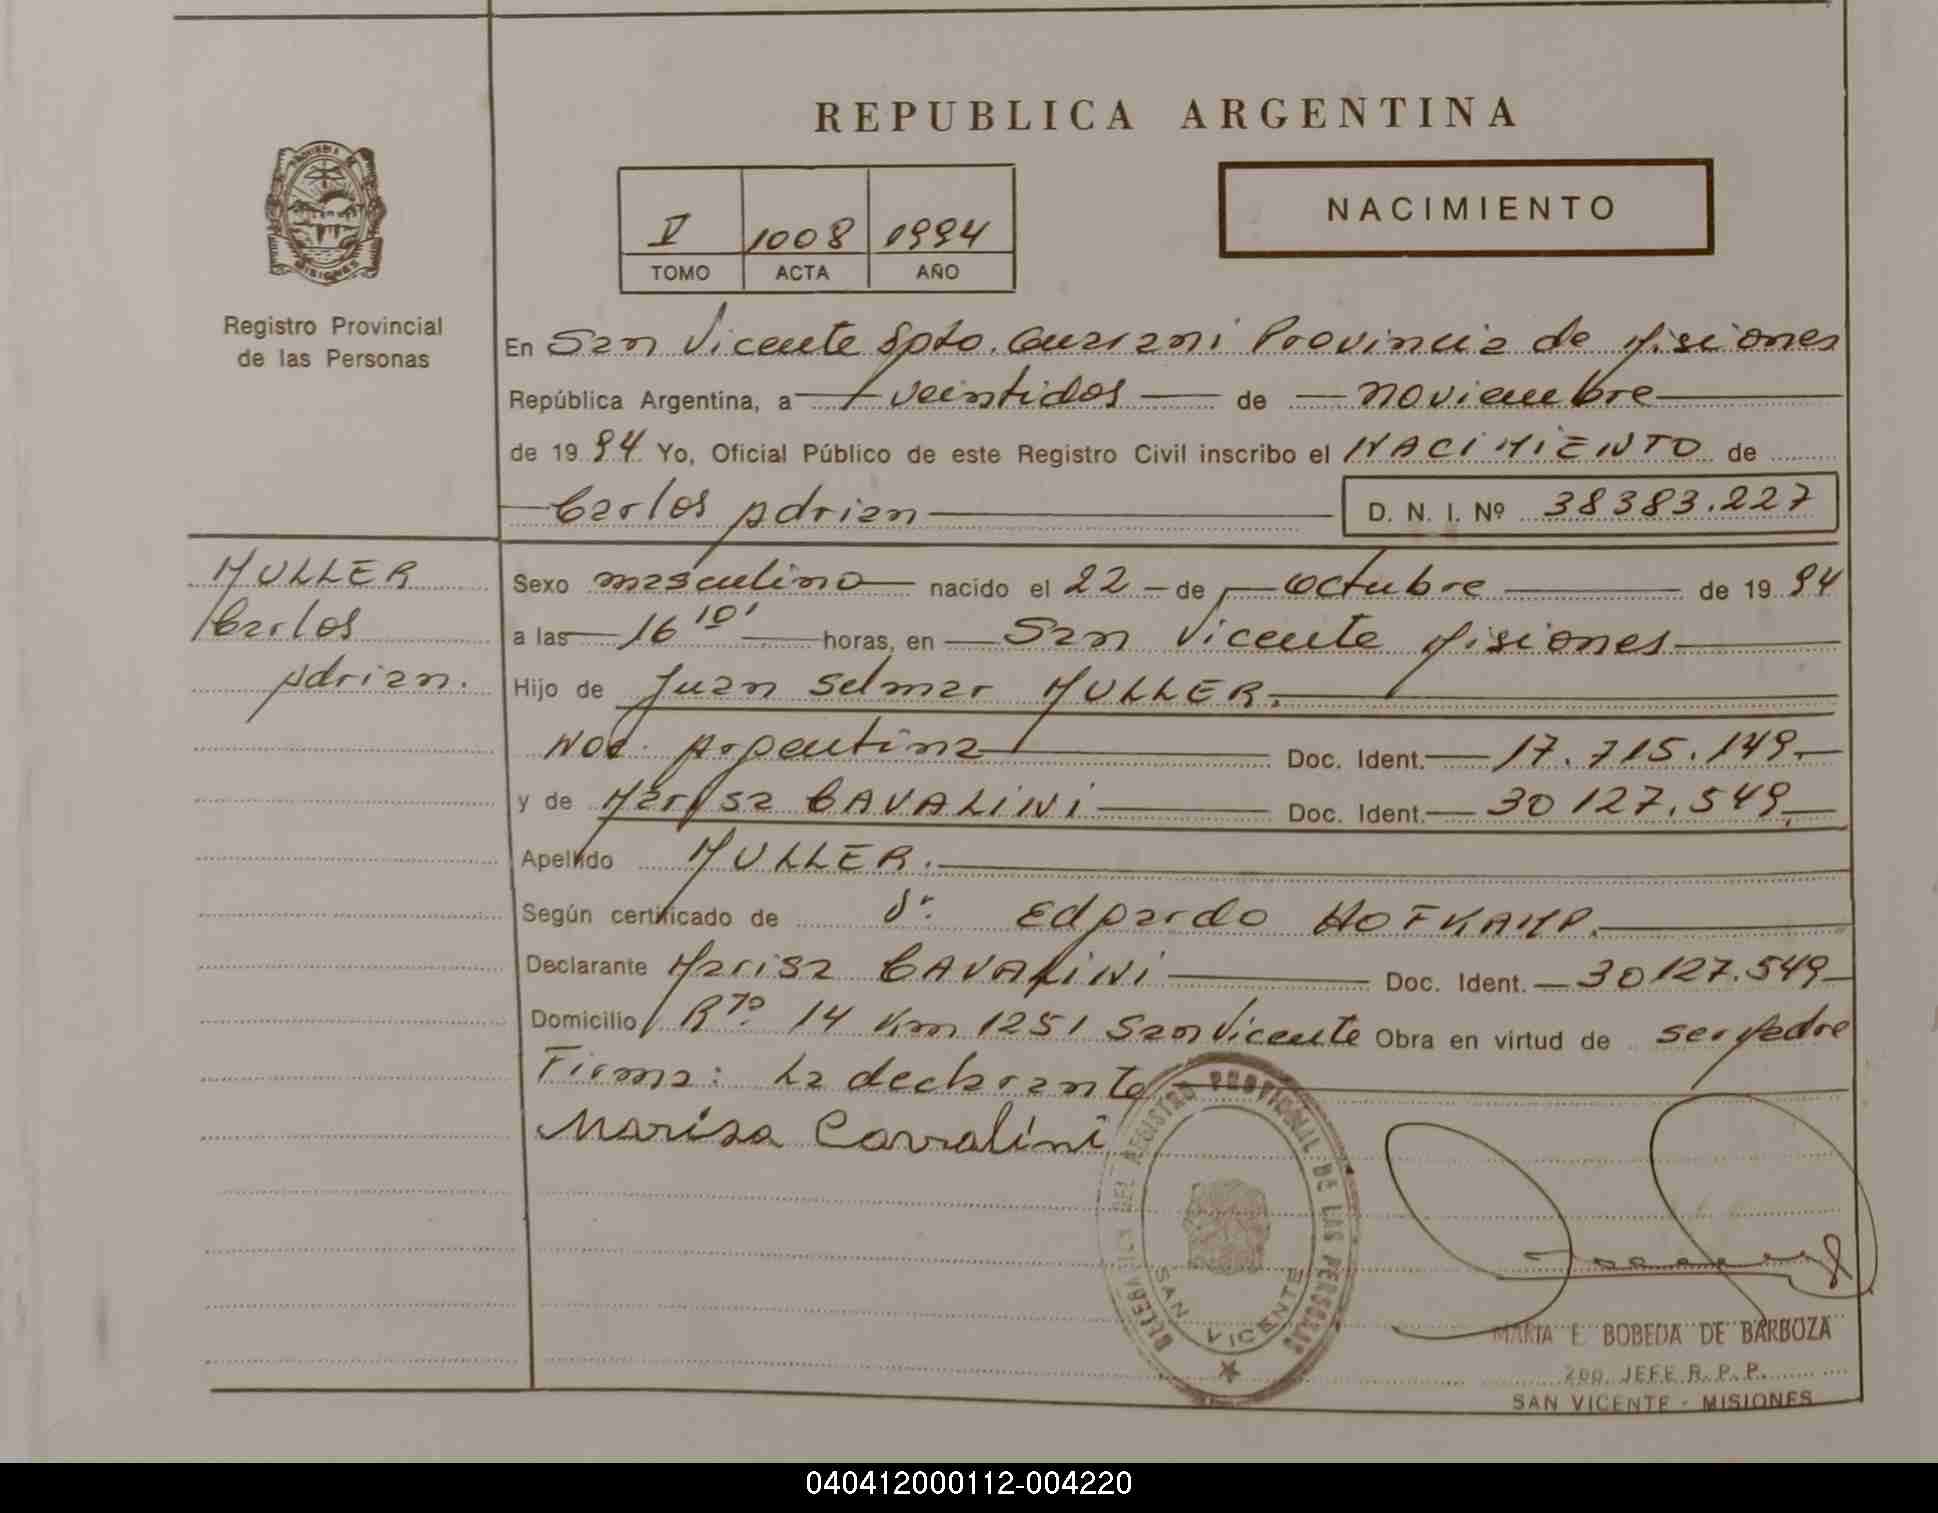 REPUBLICA ARGENTINA
PROVINCIA DE
MISIONES
V 1008 1994
TOMO ACTA AÑO
NACIMIENTO
Registro Provincial
de las Personas
En San Vicente Dpto. Guarani Provincia de Misiones
República Argentina, a veintidos de noviembre
de 1994 Yo, Oficial Público de este Registro Civil inscribo el NACIMIENTO de
Carlos Adrian D. N. I. Nº 38383.227
MULLER
Carlos
Adrian.
Sexo masculino nacido el 22 de octubre de 1994
a las 16 10' horas, en San Vicente Misiones
Hijo de Juan Selmar MULLER.
Nac. Argentina Doc. Ident. 17.715.149.
y de Marisa CAVALINI Doc. Ident. 30127.549.
Apellido MULLER.
Según certificado de Dr. Edgardo HOFKAMP.
Declarante Marisa CAVALINI Doc. Ident. 30127.549
Domicilio Rta. 14 Km 1251 San Vicente Obra en virtud de ser padre
Firma: La declarante
Marisa Cavalini
DELEGACION DEL REGISTRO PROVINCIAL DE LAS PERSONAS
SAN VICENTE
MARIA E. BOBEDA DE BARBOZA
2do. JEFE R. P. P.
SAN VICENTE - MISIONES
040412000112-004220